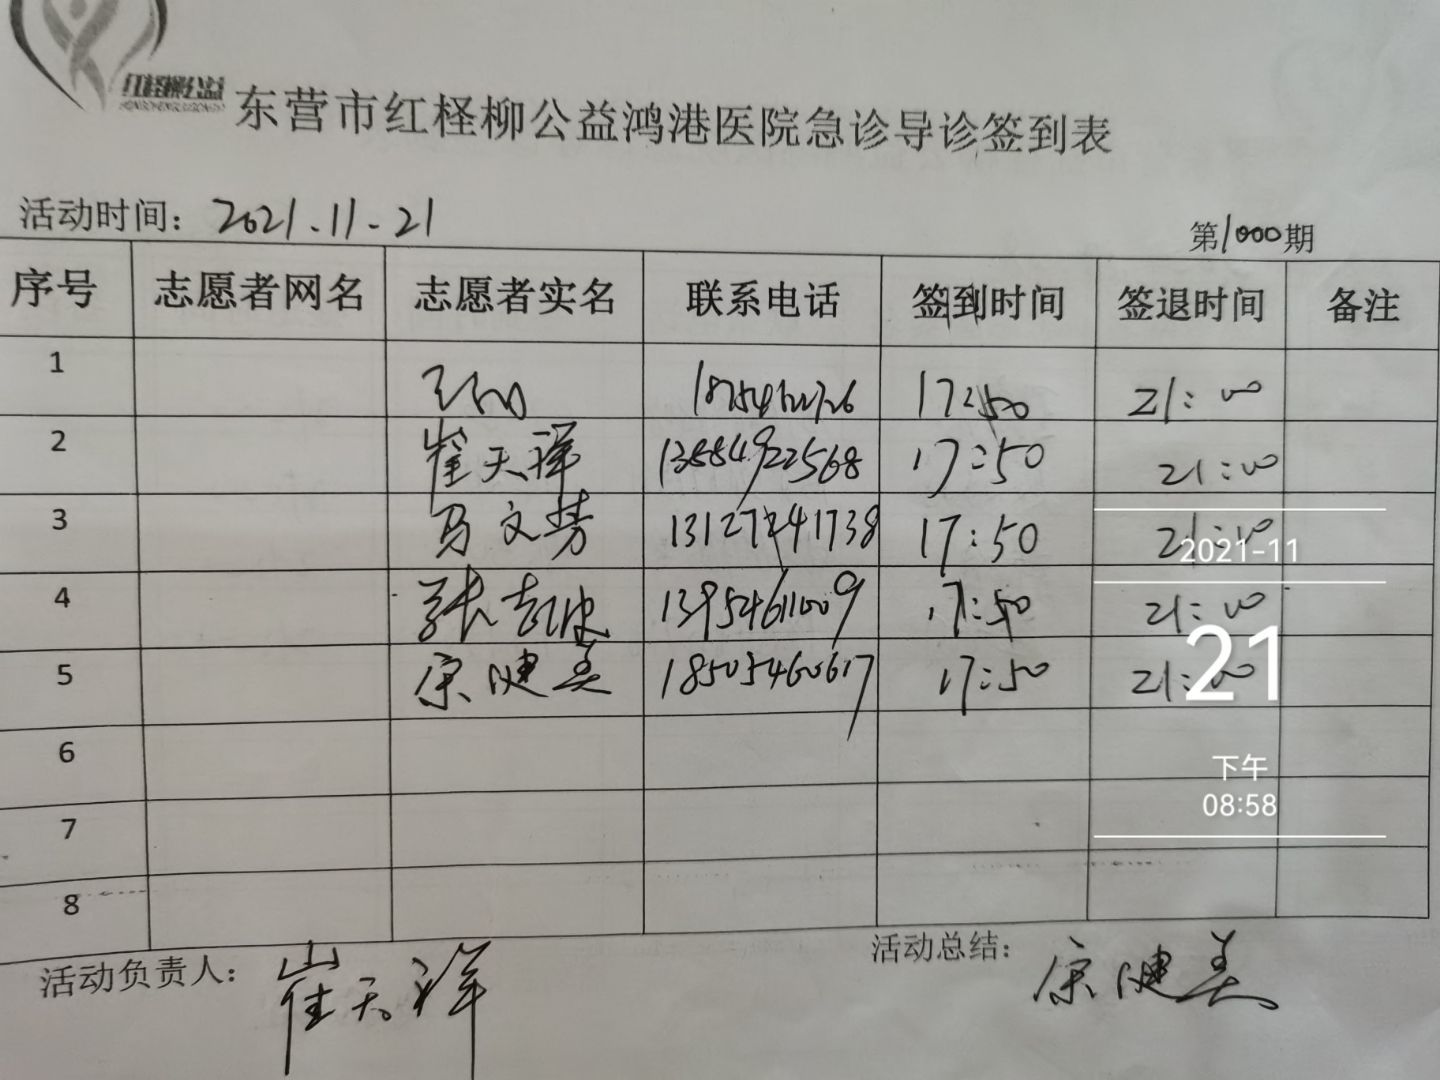 红柽柳公益
东营市红柽柳公益鸿港医院急诊导诊签到表
活动时间：2021.11-21
第1000期
序号 志愿者网名 志愿者实名 联系电话 签到时间 签退时间 备注
1 17:50 21:00
2 崔天祥 13884922568 17:50 21:00
3 马文芳 13127241738 17:50
4 张 13954611009 17:50 21:00
5 宗健美 18505460617 17:50 21:00
6
7
8
2021-11
21
下午
08:58
活动负责人：崔天祥
活动总结：宗健美